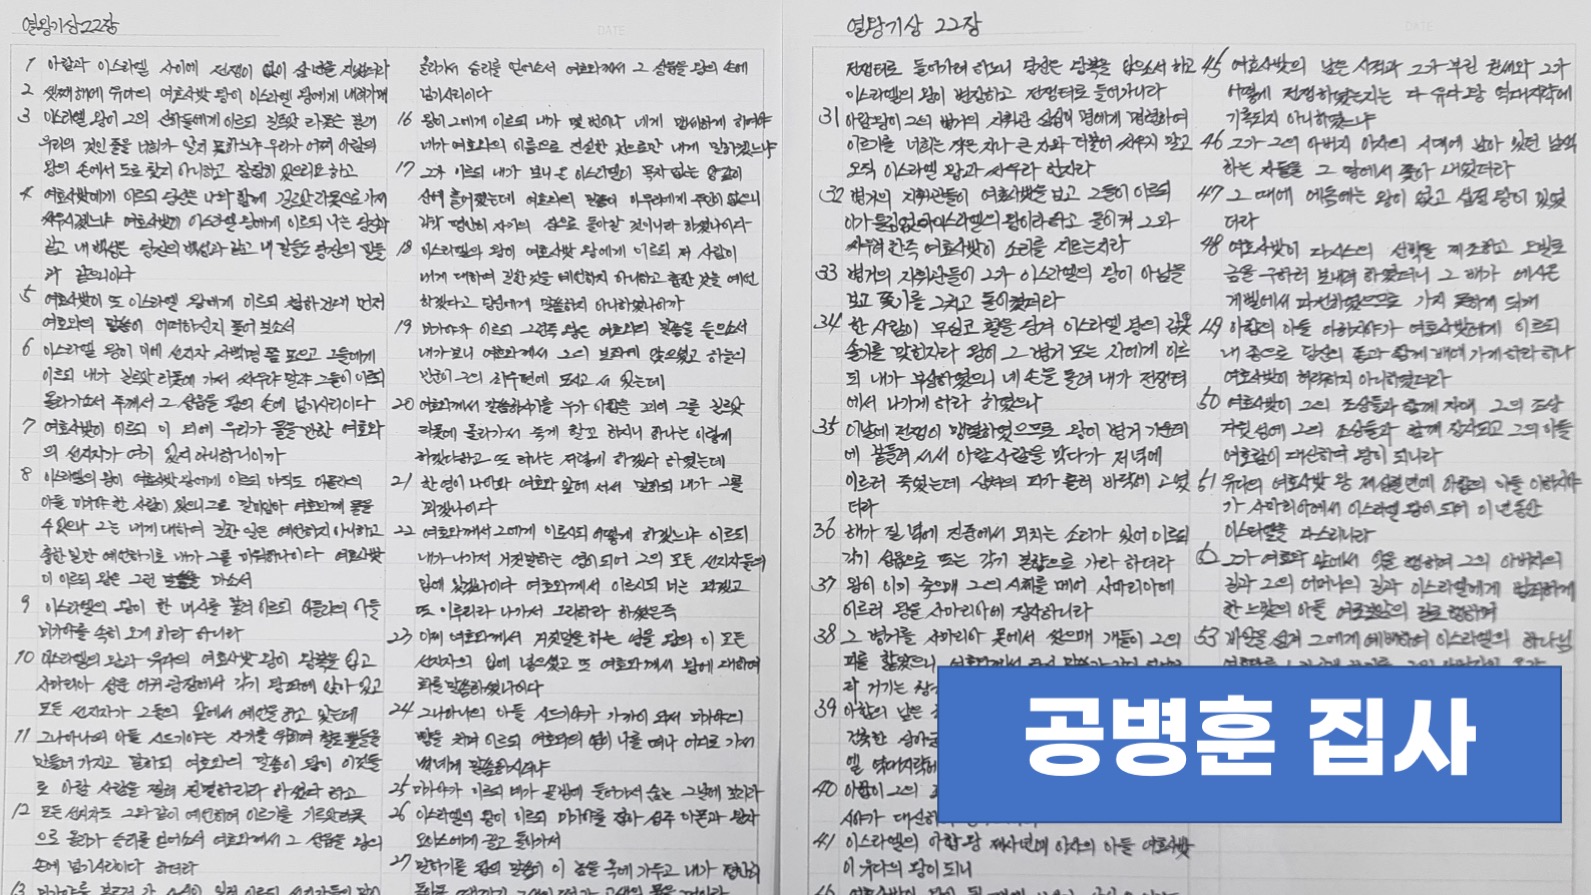 열왕기상22장
1 아람과 이스라엘 사이에 전쟁이 없이 삼년을 지냈더라
2 셋째해에 유다의 여호사밧 왕이 이스라엘 왕에게 내려가매
3 이스라엘 왕이 그의 신하들에게 이르되 길르앗 라못은 본래
우리의 것인 줄을 너희가 알지 못하느냐 우리가 어찌 아람의
왕의 손에서 도로 찾지 아니하고 잠잠히 있으리요 하고
4 여호사밧에게 이르되 당신은 나와 함께 길르앗 라못으로 가서
싸우시겠느냐 여호사밧이 이스라엘 왕에게 이르되 나는 당신과
같고 내 백성은 당신의 백성과 같고 내 말들도 당신의 말들
과 같으니이다
5 여호사밧이 또 이스라엘 왕에게 이르되 청하건대 먼저
여호와의 말씀이 어떠하신지 물어 보소서
6 이스라엘 왕이 이에 선지자 사백명쯤 모으고 그들에게
이르되 내가 길르앗 라못에 가서 싸우랴 말랴 그들이 이르되
올라가소서 주께서 그 성읍을 왕의 손에 넘기시리이다
7 여호사밧이 이르되 이 외에 우리가 물을 만한 여호와
의 선지자가 여기 있지 아니하니이까
8 이스라엘의 왕이 여호사밧 왕에게 이르되 아직도 이믈라의
아들 미가야 한 사람이 있으니 그로 말미암아 여호와께 물을
수 있으나 그는 내게 대하여 길한 일은 예언하지 아니하고
흉한 일만 예언하기로 내가 그를 미워하나이다 여호사밧
이 이르되 왕은 그런 말씀을 마소서
9 이스라엘의 왕이 한 내시를 불러 이르되 이믈라의 아들
미가야를 속히 오게 하라 하니라
10 이스라엘의 왕과 유다의 여호사밧 왕이 왕복을 입고
사마리아 성문 어귀 광장에서 각기 왕좌에 앉아 있고
모든 선지자가 그들의 앞에서 예언을 하고 있는데
11 그나아나의 아들 시드기야는 자기를 위하여 철로 뿔들을
만들어 가지고 말하되 여호와의 말씀이 왕이 이것들
로 아람 사람을 찔러 진멸하리라 하셨다 하고
12 모든 선지자도 그와 같이 예언하여 이르기를 길르앗 라못
으로 올라가 승리를 얻으소서 여호와께서 그 성읍을 왕의
손에 넘기시리이다 하더라
올라가서 승리를 얻으소서 여호와께서 그 성읍을 왕의 손에
넘기시리이다
16 왕이 그에게 이르되 내가 몇 번이나 네게 맹세하게 하여야
네가 여호와의 이름으로 진실한 것으로만 내게 말하겠느냐
17 그가 이르되 내가 보니 온 이스라엘이 목자 없는 양 같이
산에 흩어졌는데 여호와의 말씀이 이 무리에게 주인이 없으니
각각 평안히 자기의 집으로 돌아갈 것이니라 하셨나이다
18 이스라엘의 왕이 여호사밧 왕에게 이르되 저 사람이
내게 대하여 길한 것을 예언하지 아니하고 흉한 것을 예언
하겠다고 당신에게 말씀하지 아니하였나이까
19 미가야가 이르되 그런즉 왕은 여호와의 말씀을 들으소서
내가 보니 여호와께서 그의 보좌에 앉으셨고 하늘의
만군이 그의 좌우편에 모시고 서 있는데
20 여호와께서 말씀하시기를 누가 아합을 꾀어 그를 길르앗
라못에 올라가서 죽게 할꼬 하시니 하나는 이렇게
하겠다하고 또 하나는 저렇게 하겠다 하였는데
21 한 영이 나아와 여호와 앞에 서서 말하되 내가 그를
꾀겠나이다
22 여호와께서 그에게 이르시되 어떻게 하겠느냐 이르되
내가 나가서 거짓말하는 영이 되어 그의 모든 선지자들의
입에 있겠나이다 여호와께서 이르시되 너는 꾀겠고
또 이루리라 나가서 그리하라 하셨은즉
23 이제 여호와께서 거짓말하는 영을 왕의 이 모든
선지자의 입에 넣으셨고 또 여호와께서 왕에 대하여
화를 말씀하셨나이다
24 그나아나의 아들 시드기야가 가까이 와서 미가야의
뺨을 치며 이르되 여호와의 영이 나를 떠나 어디로 가서
네게 말씀하시더냐
25 미가야가 이르되 네가 골방에 들어가서 숨는 그 날에 보리라
26 이스라엘의 왕이 이르되 미가야를 잡아 성주 아몬과 왕자
요아스에게 끌고 돌아가서
27 말하기를 왕의 말씀이 이 놈을 옥에 가두고 내가 평안히
열왕기상 22장
전쟁터로 들어가려 하노니 당신은 왕복을 입으소서 하고
이스라엘의 왕이 변장하고 전쟁터로 들어가니라
31 아람 왕이 그의 병거의 지휘관 삼십이 명에게 명령하여
이르기를 너희는 작은 자나 큰 자와 더불어 싸우지 말고
오직 이스라엘 왕과 싸우라 한지라
32 병거의 지휘관들이 여호사밧을 보고 그들이 이르되
이가 틀림없이 이스라엘의 왕이라 하고 돌이켜 그와
싸우려 한즉 여호사밧이 소리를 지르는지라
33 병거의 지휘관들이 그가 이스라엘의 왕이 아님을
보고 쫓기를 그치고 돌이켰더라
34 한 사람이 무심코 활을 당겨 이스라엘 왕의 갑옷
솔기를 맞힌지라 왕이 그 병거 모는 자에게 이르
되 내가 부상하였으니 네 손을 돌려 내가 전쟁터
에서 나가게 하라 하였으나
35 이날에 전쟁이 맹렬하였으므로 왕이 병거 가운데
에 붙들려 서서 아람 사람을 막다가 저녁에
이르러 죽었는데 상처의 피가 흘러 바닥에 고였
더라
36 해가 질 녘에 진중에서 외치는 소리가 있어 이르되
각기 성읍으로 또는 각기 본향으로 가라 하더라
37 왕이 이미 죽으매 그의 시체를 메어 사마리아에
이르러 왕을 사마리아에 장사하니라
38 그 병거를 사마리아 못에서 씻으매 개들이 그의
피를 핥았으니
라 거기는
39 아합의 남은
건축한
엘
40 아합이 그의
시야가 대신하
41 이스라엘의 아합 왕 제사년에 아사의 아들 여호사밧
이 유다의 왕이 되니
45 여호사밧의 남은 사적과 그가 부린 권세와 그가
어떻게 전쟁하였는지는 다 유다 왕 역대지략에
기록되지 아니하였느냐
46 그가 그의 아버지 아사의 시대에 남아 있던 남색
하는 자들을 그 땅에서 쫓아 내었더라
47 그 때에 에돔에는 왕이 없고 섭정 왕이 있었
더라
48 여호사밧이 다시스의 선박을 제조하고 오빌로
금을 구하러 보내려 하였더니 그 배가 에시온
게벨에서 파선하였으므로 가지 못하게 되매
49 아합의 아들 아하시야가 여호사밧에게 이르되
내 종으로 당신의 종과 함께 배에 가게 하라 하나
여호사밧이 허락하지 아니하였더라
50 여호사밧이 그의 조상들과 함께 자매 그의 조상
다윗 성에 그의 조상들과 함께 장사되고 그의 아들
여호람이 대신하여 왕이 되니라
51 유다의 여호사밧 왕 제십칠년에 아합의 아들 아하시야
가 사마리아에서 이스라엘 왕이 되어 이 년 동안
이스라엘을 다스리니라
52 그가 여호와 앞에서 악을 행하여 그의 아버지의
길과 그의 어머니의 길과 이스라엘에게 범죄하게
한 느밧의 아들 여로보암의 길로 행하며
53 바알을 섬겨 그에게 예배하여 이스라엘의 하나님
공병훈 집사